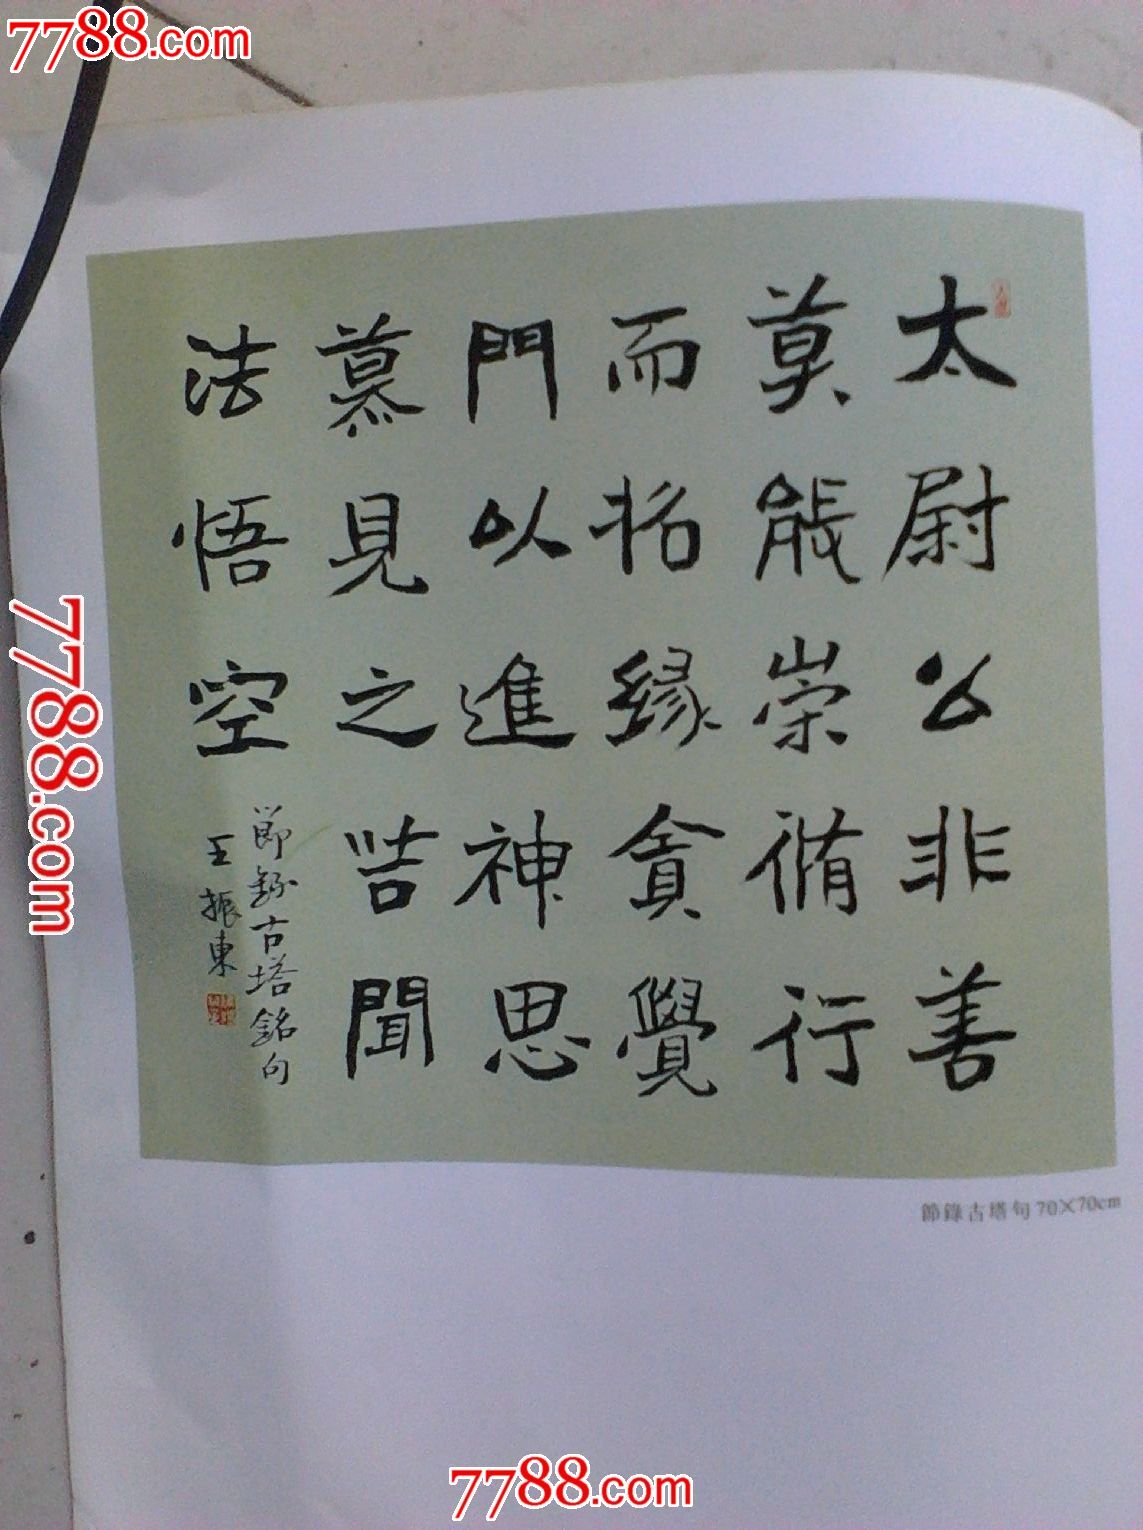 7788.com
太尉公非善
莫能崇脩行
而招緣貪覺
門以進神思
慕見之喆聞
法悟空
節錄古塔銘句
王振東
節錄古塔句 70×70cm
7788.com
7788.com